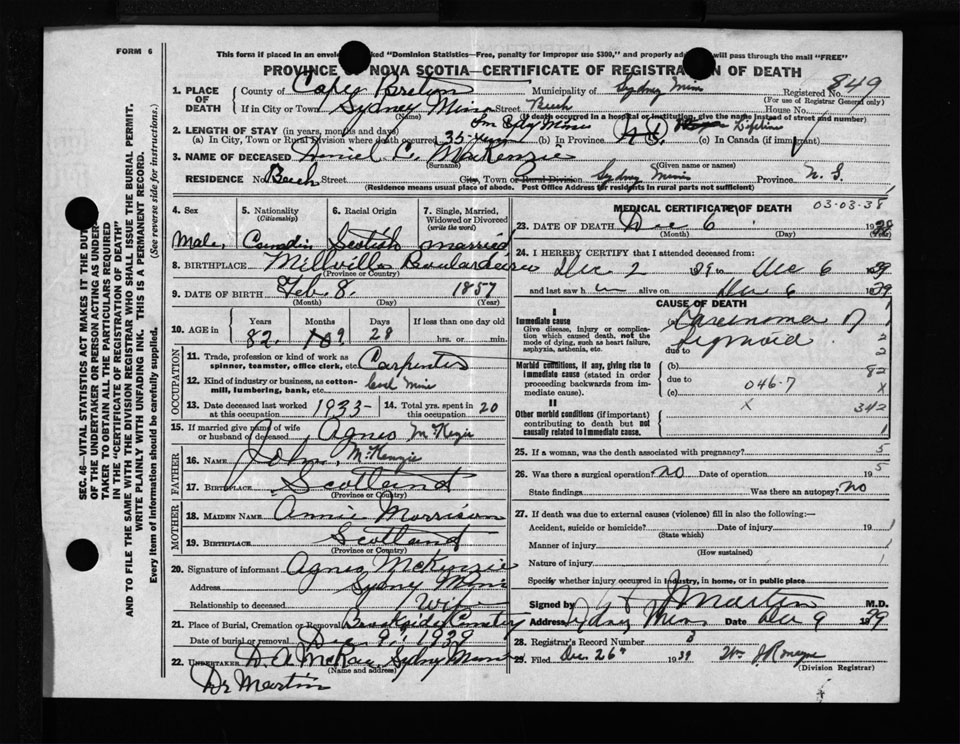 FORM 6
This form if placed in an envelope marked "Dominion Statistics—Free, penalty for improper use $300," and properly addressed will pass through the mail "FREE"
PROVINCE OF NOVA SCOTIA—CERTIFICATE OF REGISTRATION OF DEATH
849
1. PLACE OF DEATH County of Cape Breton Municipality of Sydney Mines Registered No.
(For use of Registrar General only)
If in City or Town Sydney Mines Street Beech House No.
(Name) (If death occurred in a hospital or institution, give the name instead of street and number)
2. LENGTH OF STAY (in years, months and days)
(a) In City, Town or Rural Division where death occurred 35 years (b) In Province (c) In Canada (if immigrant) Lifetime
3. NAME OF DECEASED Daniel C. MacKenzie
(Surname) (Given name or names)
RESIDENCE No. Beech Street City, Town or Rural Division Sydney Mines Province N. S.
(Residence means usual place of abode. Post Office Address for residents in rural parts not sufficient)
4. Sex 5. Nationality (Citizenship) 6. Racial Origin 7. Single, Married, Widowed or Divorced (write the word)
Male Scotish married
8. BIRTHPLACE Millville Boularderie
(Province or Country)
9. DATE OF BIRTH Feb 8. 1857
(Month) (Day) (Year)
10. AGE in Years Months Days If less than one day old
82 28 hrs. or min.
OCCUPATION
11. Trade, profession or kind of work as spinner, teamster, office clerk, etc. Carpenter
12. Kind of industry or business, as cotton-mill, lumbering, bank, etc. Coal Mine
13. Date deceased last worked at this occupation 1933 14. Total yrs. spent in this occupation 20
15. If married give name of wife or husband of deceased Agnes
FATHER
16. NAME John McKenzie
17. BIRTHPLACE Scotland
(Province or Country)
MOTHER
18. MAIDEN NAME Annie Morrison
19. BIRTHPLACE Scotland
(Province or Country)
20. Signature of informant Agnes McKenzie
Address Sydney Mines
Relationship to deceased Wife
21. Place of Burial, Cremation or Removal Brookside Cemetery
Date of burial or removal Dec 9 1939
22. UNDERTAKER D. A. McRae, Sydney Mines
(Name and address)
Dr Martin
MEDICAL CERTIFICATE OF DEATH
03-03-38
23. DATE OF DEATH Dec 6 19
(Month) (Day) (Year)
24. I HEREBY CERTIFY that I attended deceased from:
Dec 2 39 to Dec 6 1939
and last saw h im alive on Dec 6 1939
CAUSE OF DEATH
I
Immediate cause
Give disease, injury or complication which caused death, not the mode of dying, such as heart failure, asphyxia, asthenia, etc.
Carcinoma of
Sigmoid
due to
Morbid conditions, if any, giving rise to immediate cause (stated in order proceeding backwards from immediate cause).
(b)
82
due to
046.7
(c)
X
II
X
342
Other morbid conditions (if important) contributing to death but not causally related to immediate cause.
1
25. If a woman, was the death associated with pregnancy?
26. Was there a surgical operation? No Date of operation 19
State findings Was there an autopsy? No
27. If death was due to external causes (violence) fill in also the following:—
Accident, suicide or homicide? Date of injury 19
(State which)
Manner of injury
(How sustained)
Nature of injury
Specify whether injury occurred in industry, in home, or in public place
Signed by Martin M.D.
Address Sydney Mines Date Dec 9 1939
28. Registrar's Record Number 3
29. Filed Dec 26th 1939 Wm
(Division Registrar)
SEC. 46—VITAL STATISTICS ACT MAKES IT THE DUTY
OF THE UNDERTAKER OR PERSON ACTING AS UNDER-
TAKER TO OBTAIN ALL THE PARTICULARS REQUIRED
IN THE "CERTIFICATE OF REGISTRATION OF DEATH"
AND TO FILE THE SAME WITH THE DIVISION REGISTRAR WHO SHALL ISSUE THE BURIAL PERMIT.
WRITE PLAINLY WITH UNFADING INK. THIS IS A PERMANENT RECORD.
Every item of information should be carefully supplied. (See reverse side for instructions.)